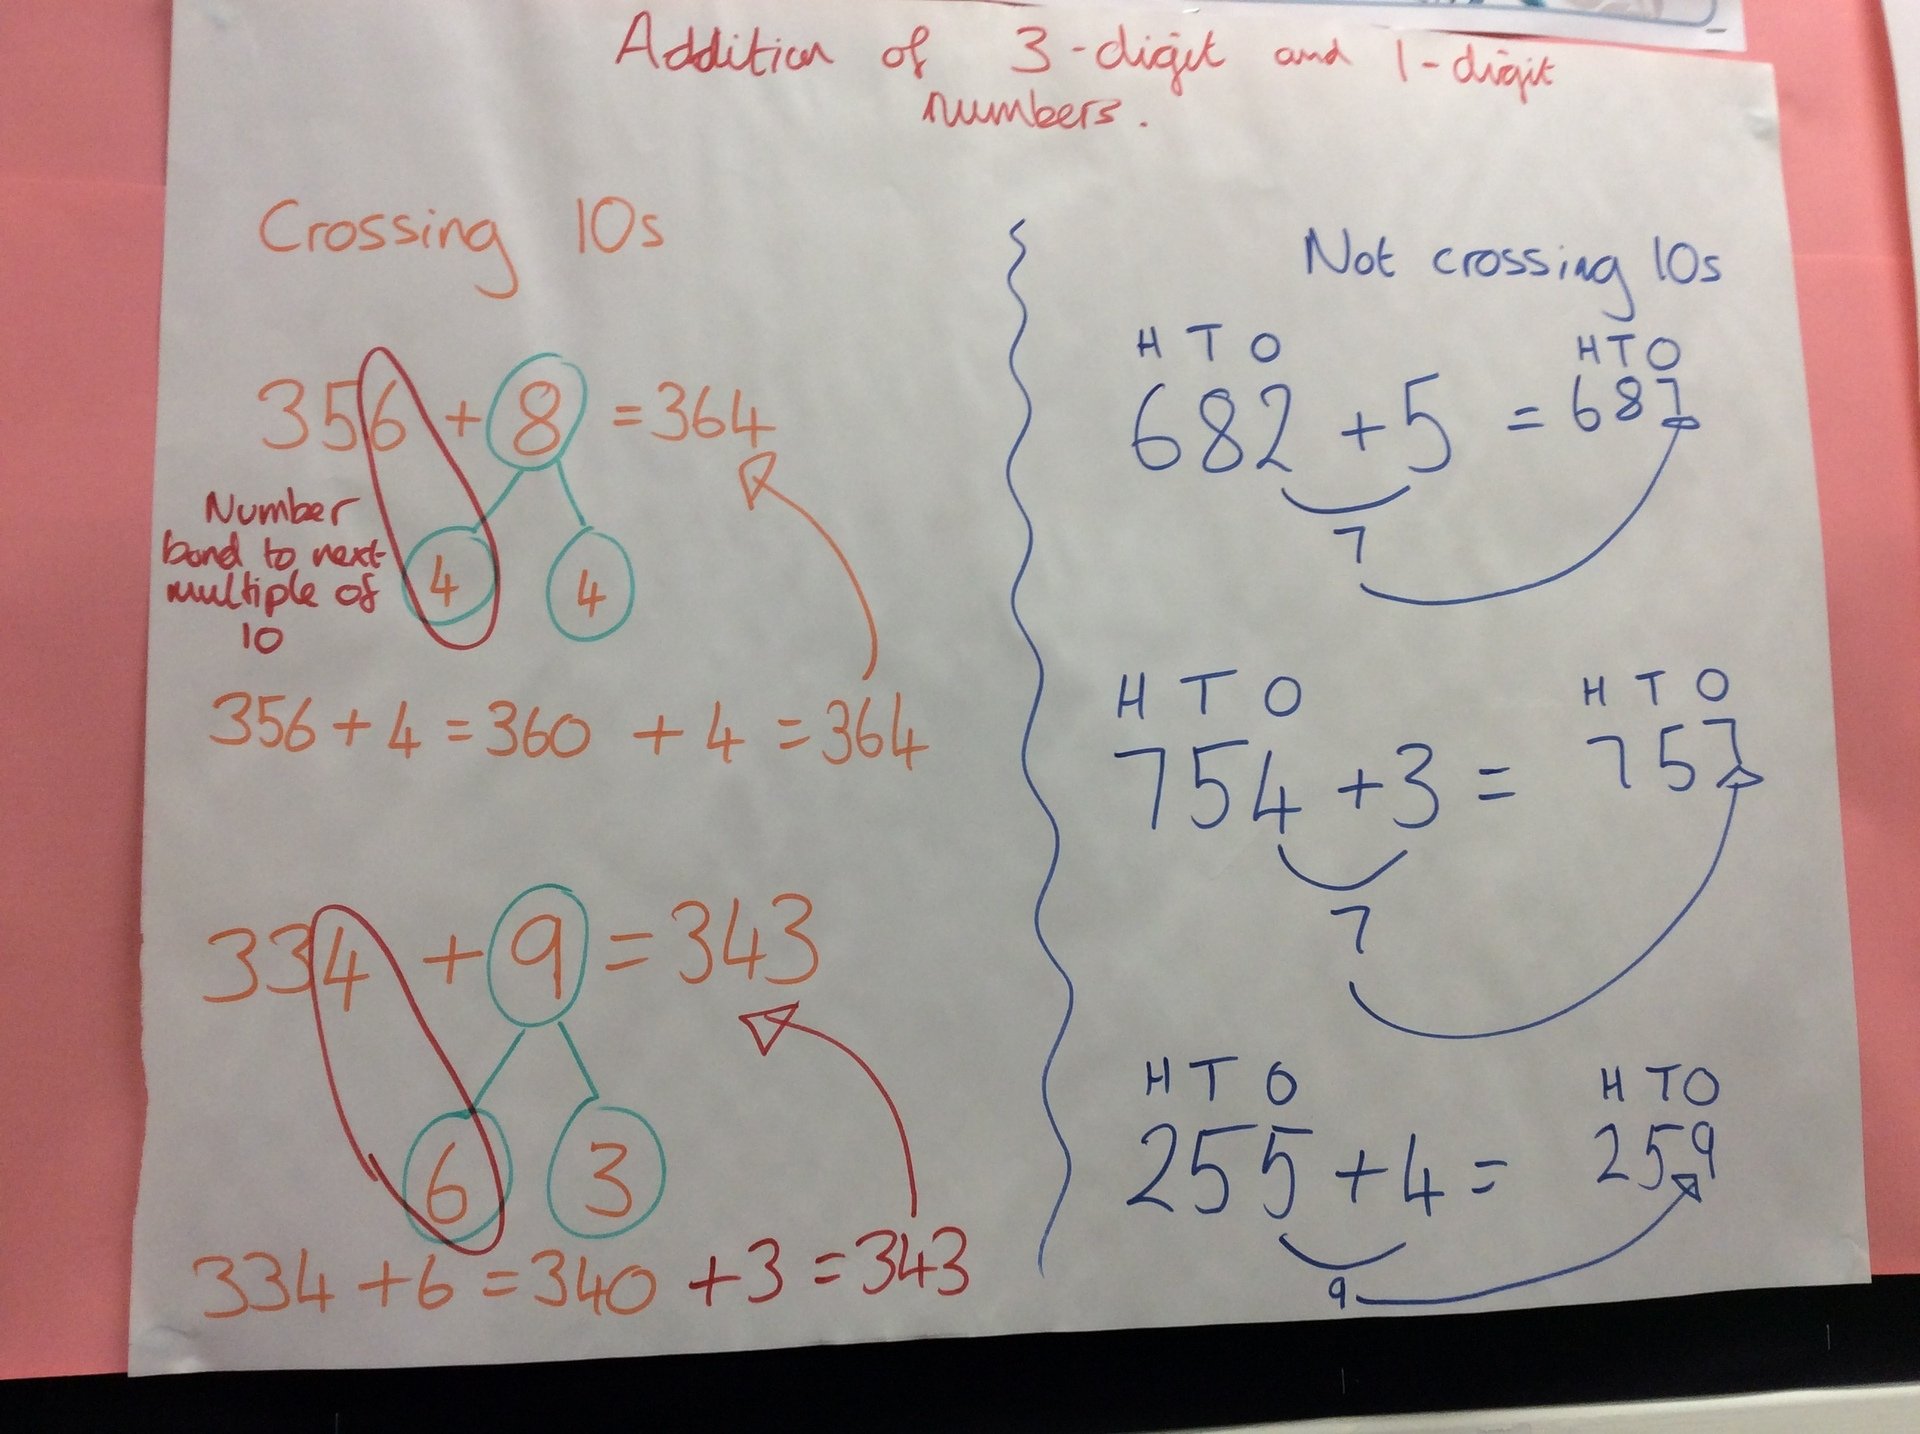 Addition of 3-digit and 1-digit
numbers.
Crossing 10s
356 + 8 = 364
Number
bond to next
multiple of
10
4 4
356 + 4 = 360 + 4 = 364
334 + 9 = 343
6 3
334 + 6 = 340 + 3 = 343
Not crossing 10s
H T O H T O
682 + 5 = 687
7
H T O H T O
754 + 3 = 757
7
H T O H T O
255 + 4 = 259
9